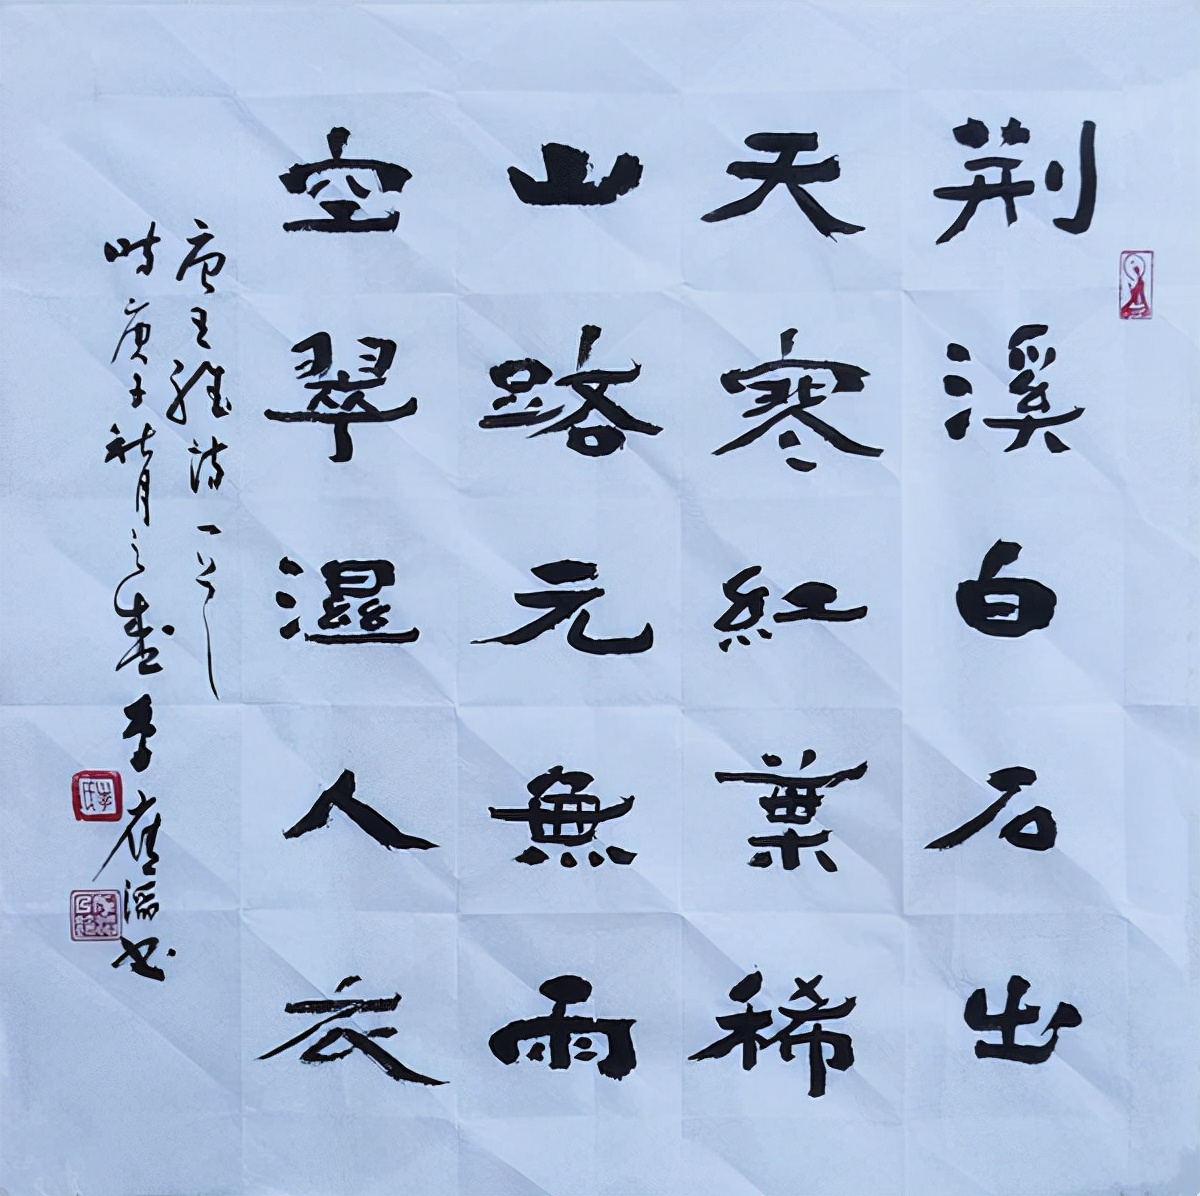 荆溪白石出
天寒紅葉稀
山路元無雨
空翠濕人衣
唐王維詩一首
時庚子秋月之
李應滔书